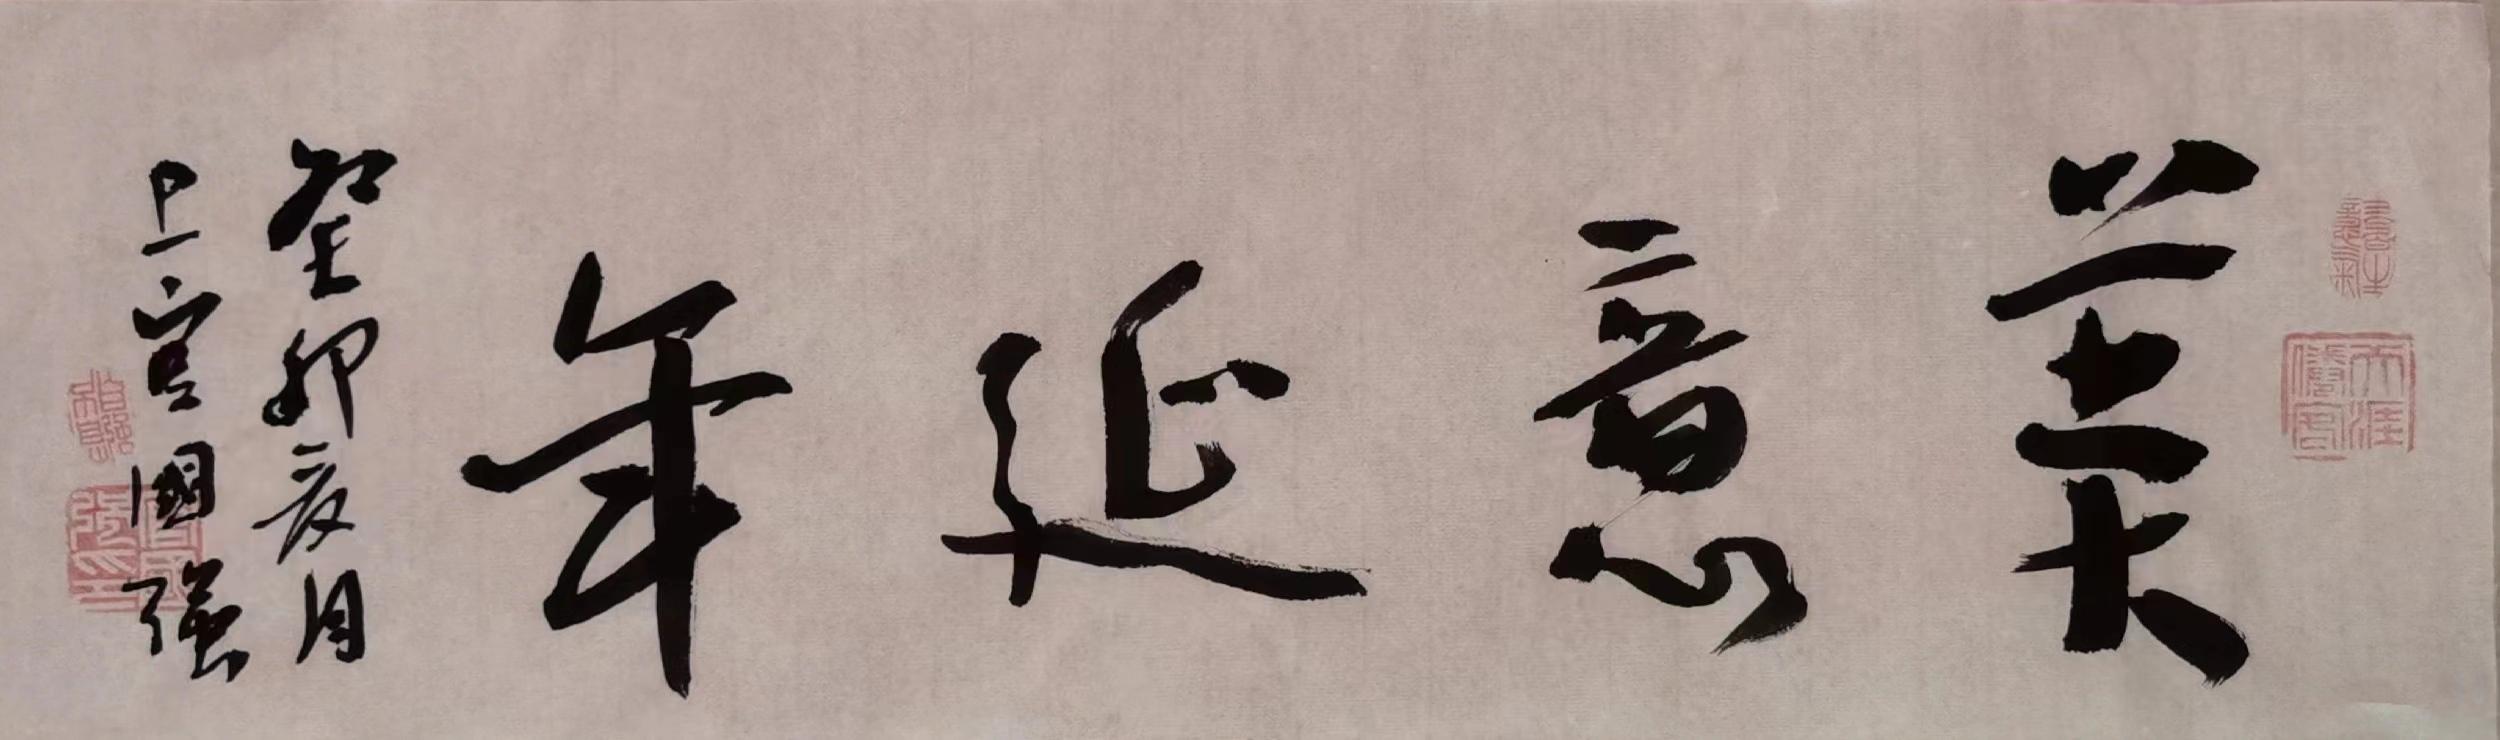 美意延年
癸卯夏月
上官國強